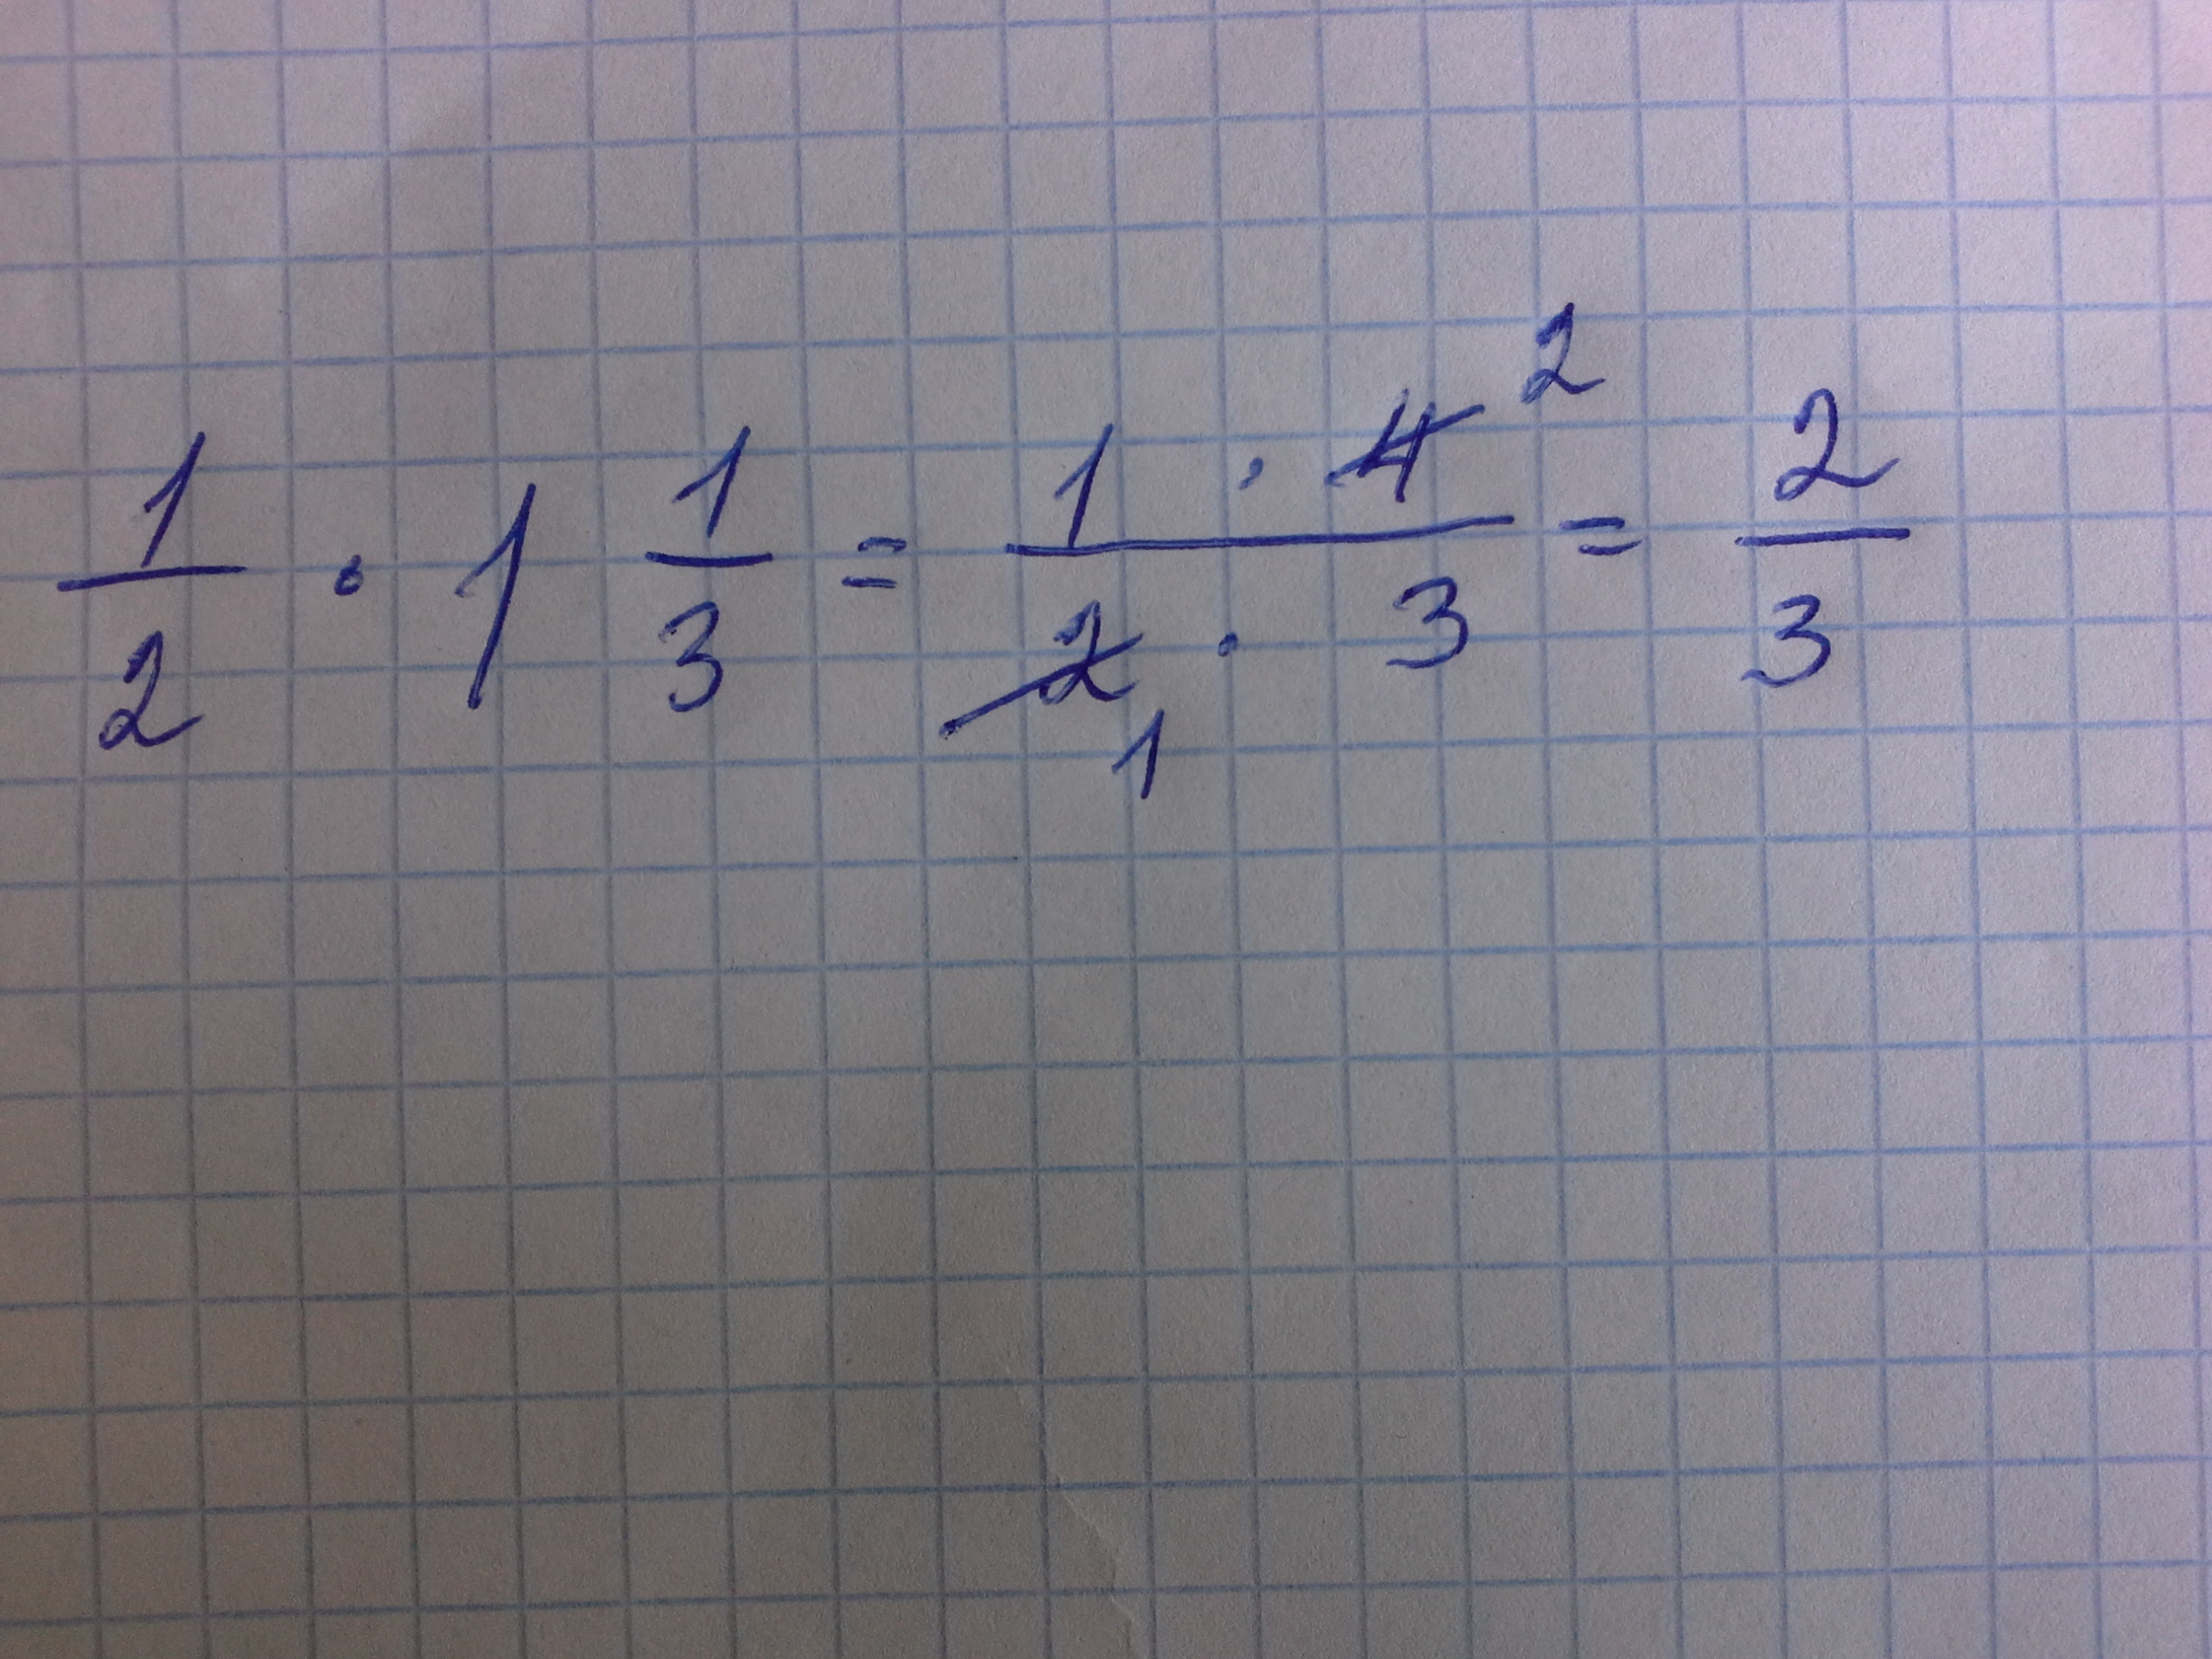 1/2 · 1 1/3 = 1 · 4 2 / 2 1 · 3 = 2/3